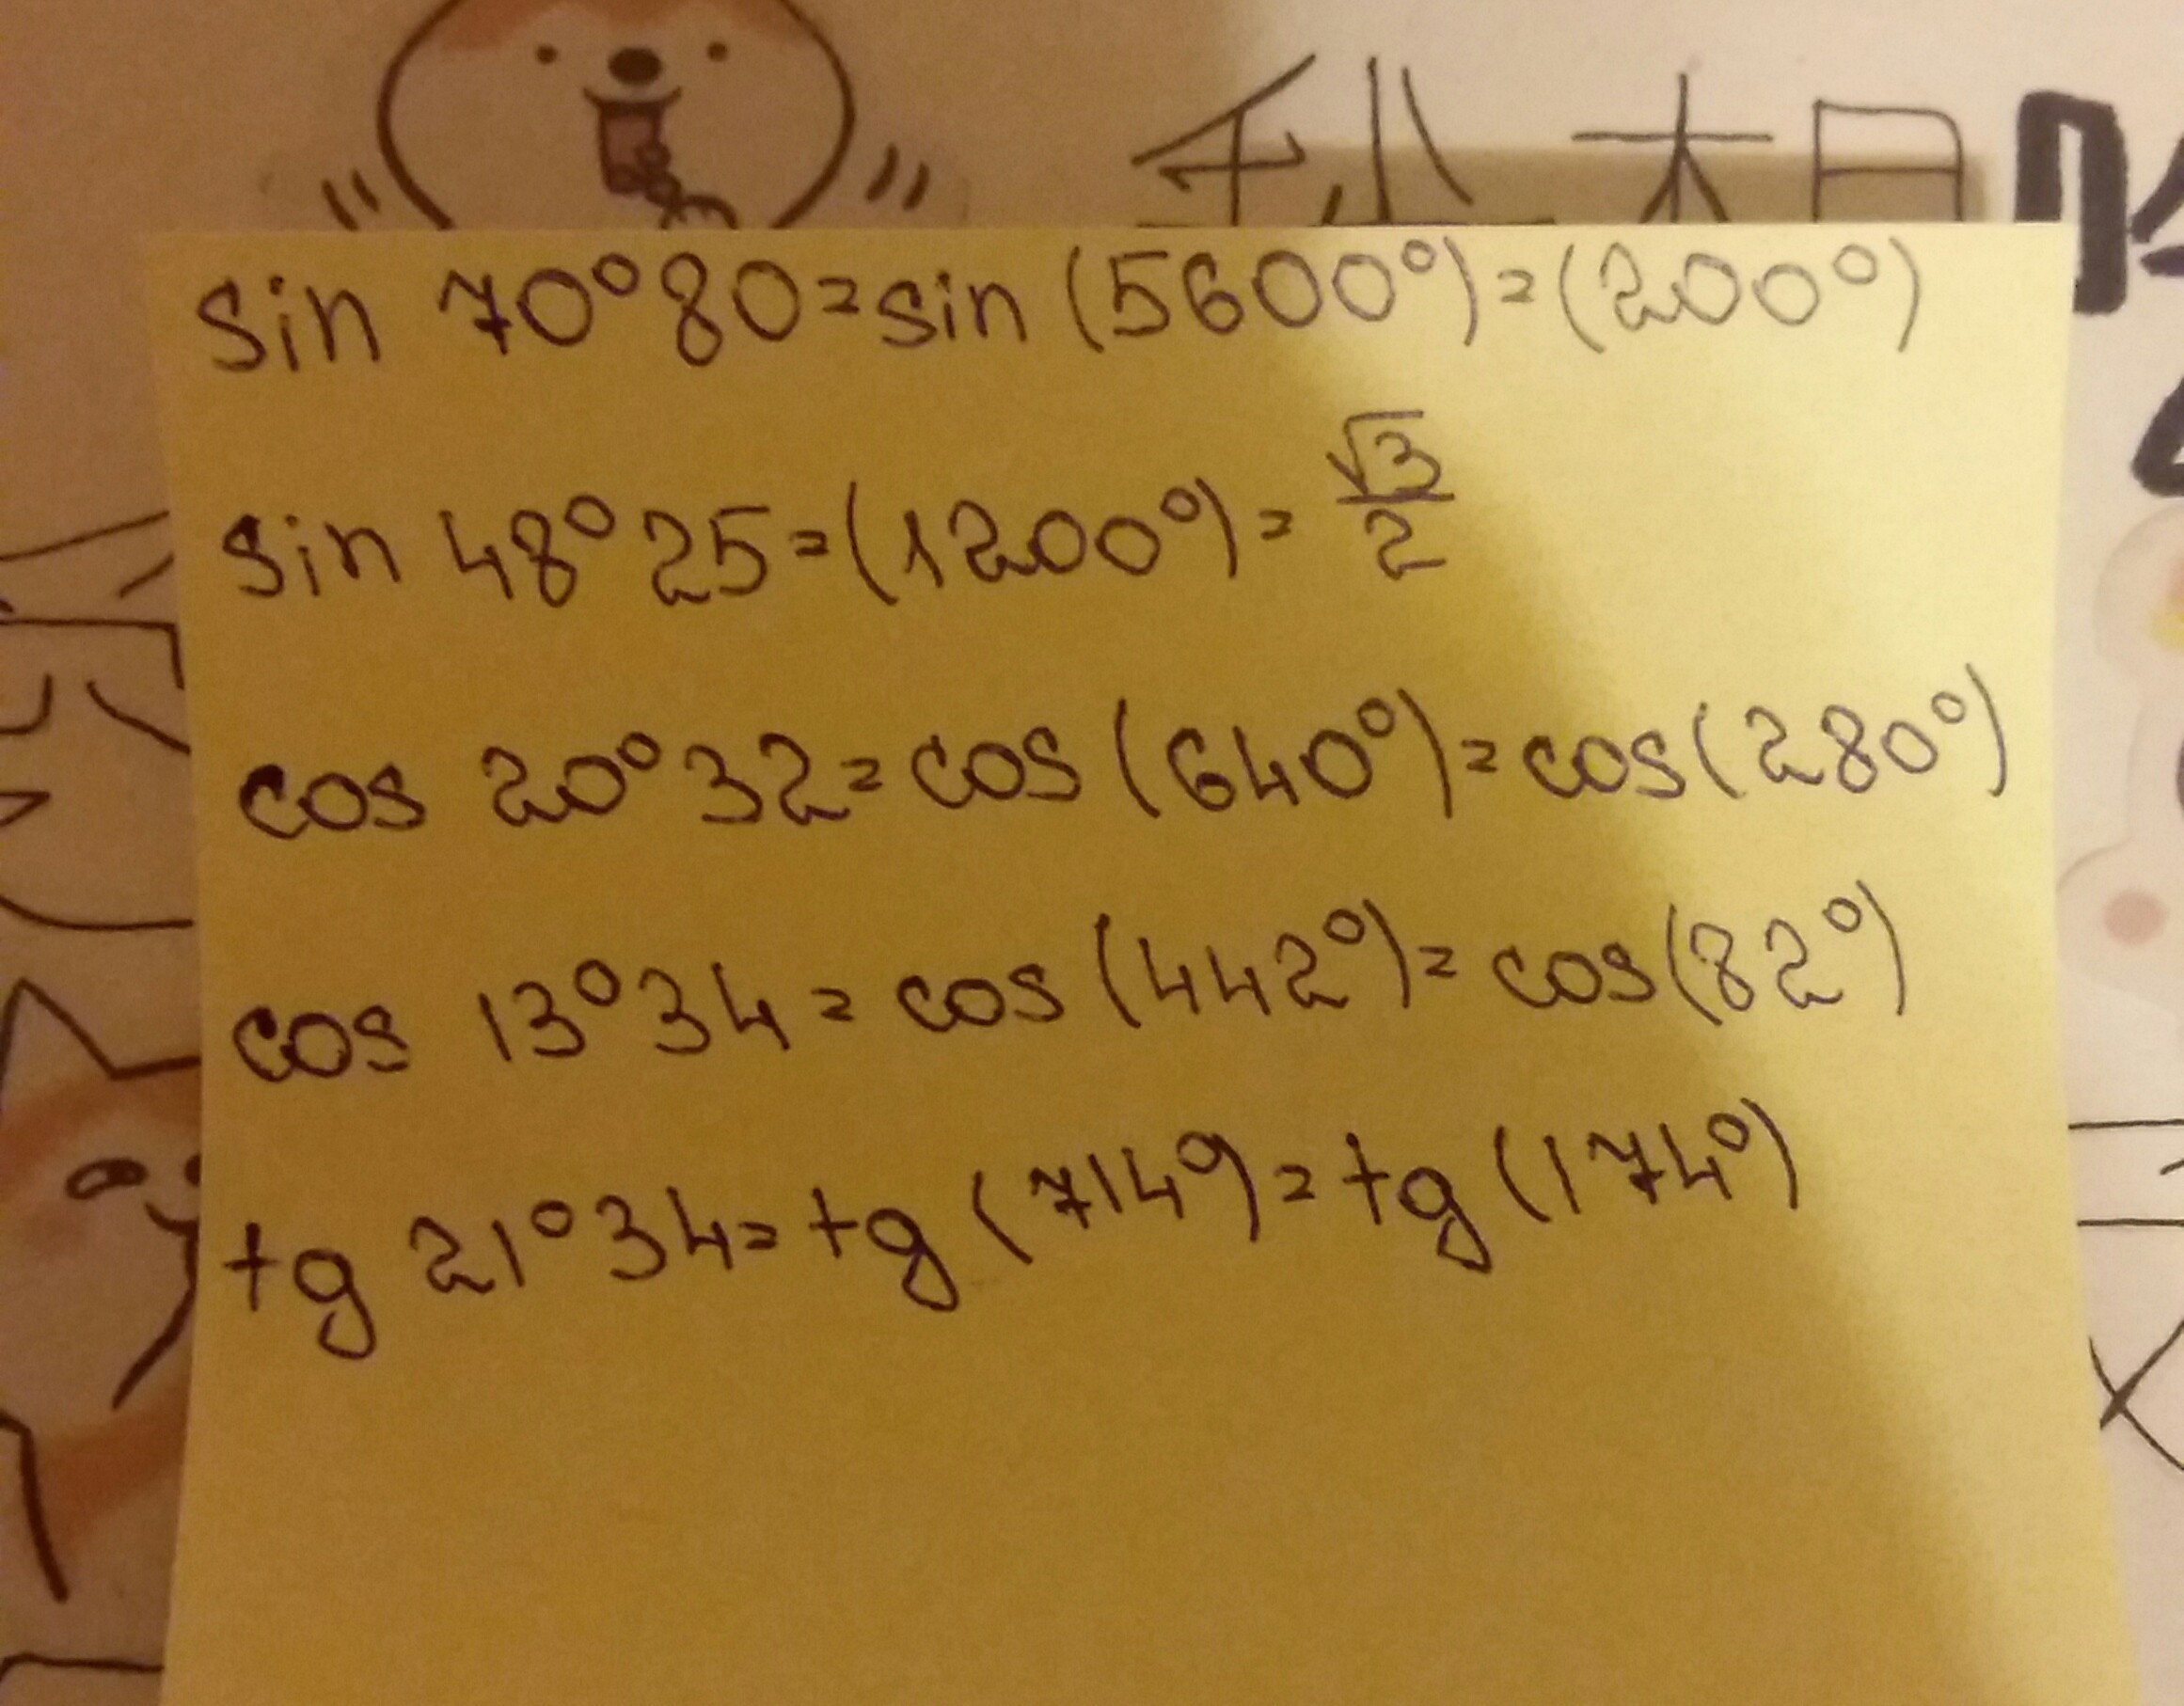 sin 70°80=sin (5600°)=(200°)
sin 48°25=(1200°)=√3/2
cos 20°32=cos (640°)=cos(280°)
cos 13°34=cos (442°)=cos(82°)
tg 21°34=tg (714°)=tg (174°)